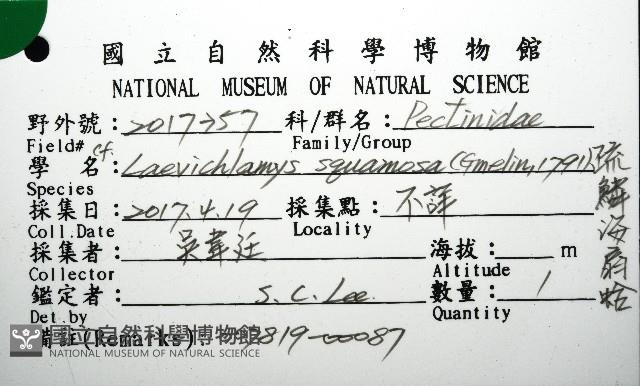 國立自然科學博物館
NATIONAL MUSEUM OF NATURAL SCIENCE
野外號: 2017-757 科/群名: Pectinidae
Field# Family/Group
學 名: cf. Laevichlamys squamosa (Gmelin, 1791) 疏鱗海扇蛤
Species
採集日: 2017.4.19 採集點: 不詳
Coll.Date Locality
採集者: 吳韋廷 海拔: m
Collector Altitude
鑑定者: S. C. Lee 數量: 1
Det.by Quantity
備註(Remarks) 819-00087
國立自然科學博物館
NATIONAL MUSEUM OF NATURAL SCIENCE